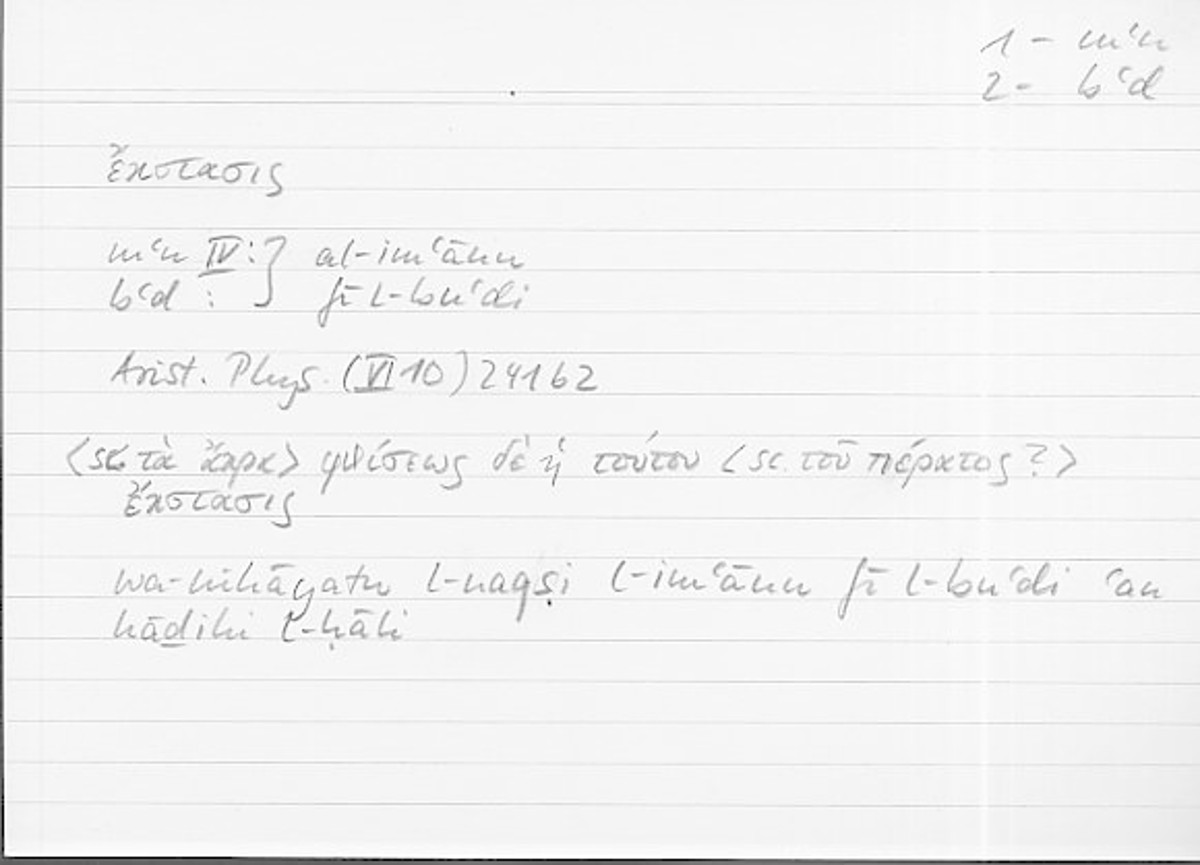 1 - mʿn
2 - bʿd
ἔκστασις
mʿn IV : } al-imʿānu
bʿd : } fī l-buʿdi
Arist. Phys. (VI 10) 241b2
<sc. τὰ ἄκρα> φθίσεως δὲ ἡ τούτου <sc. τοῦ πέρατος ?>
ἔκστασις
wa-nihāyatu l-naqṣi l-imʿānu fī l-buʿdi ʿan
hāḏihi l-ḥāli